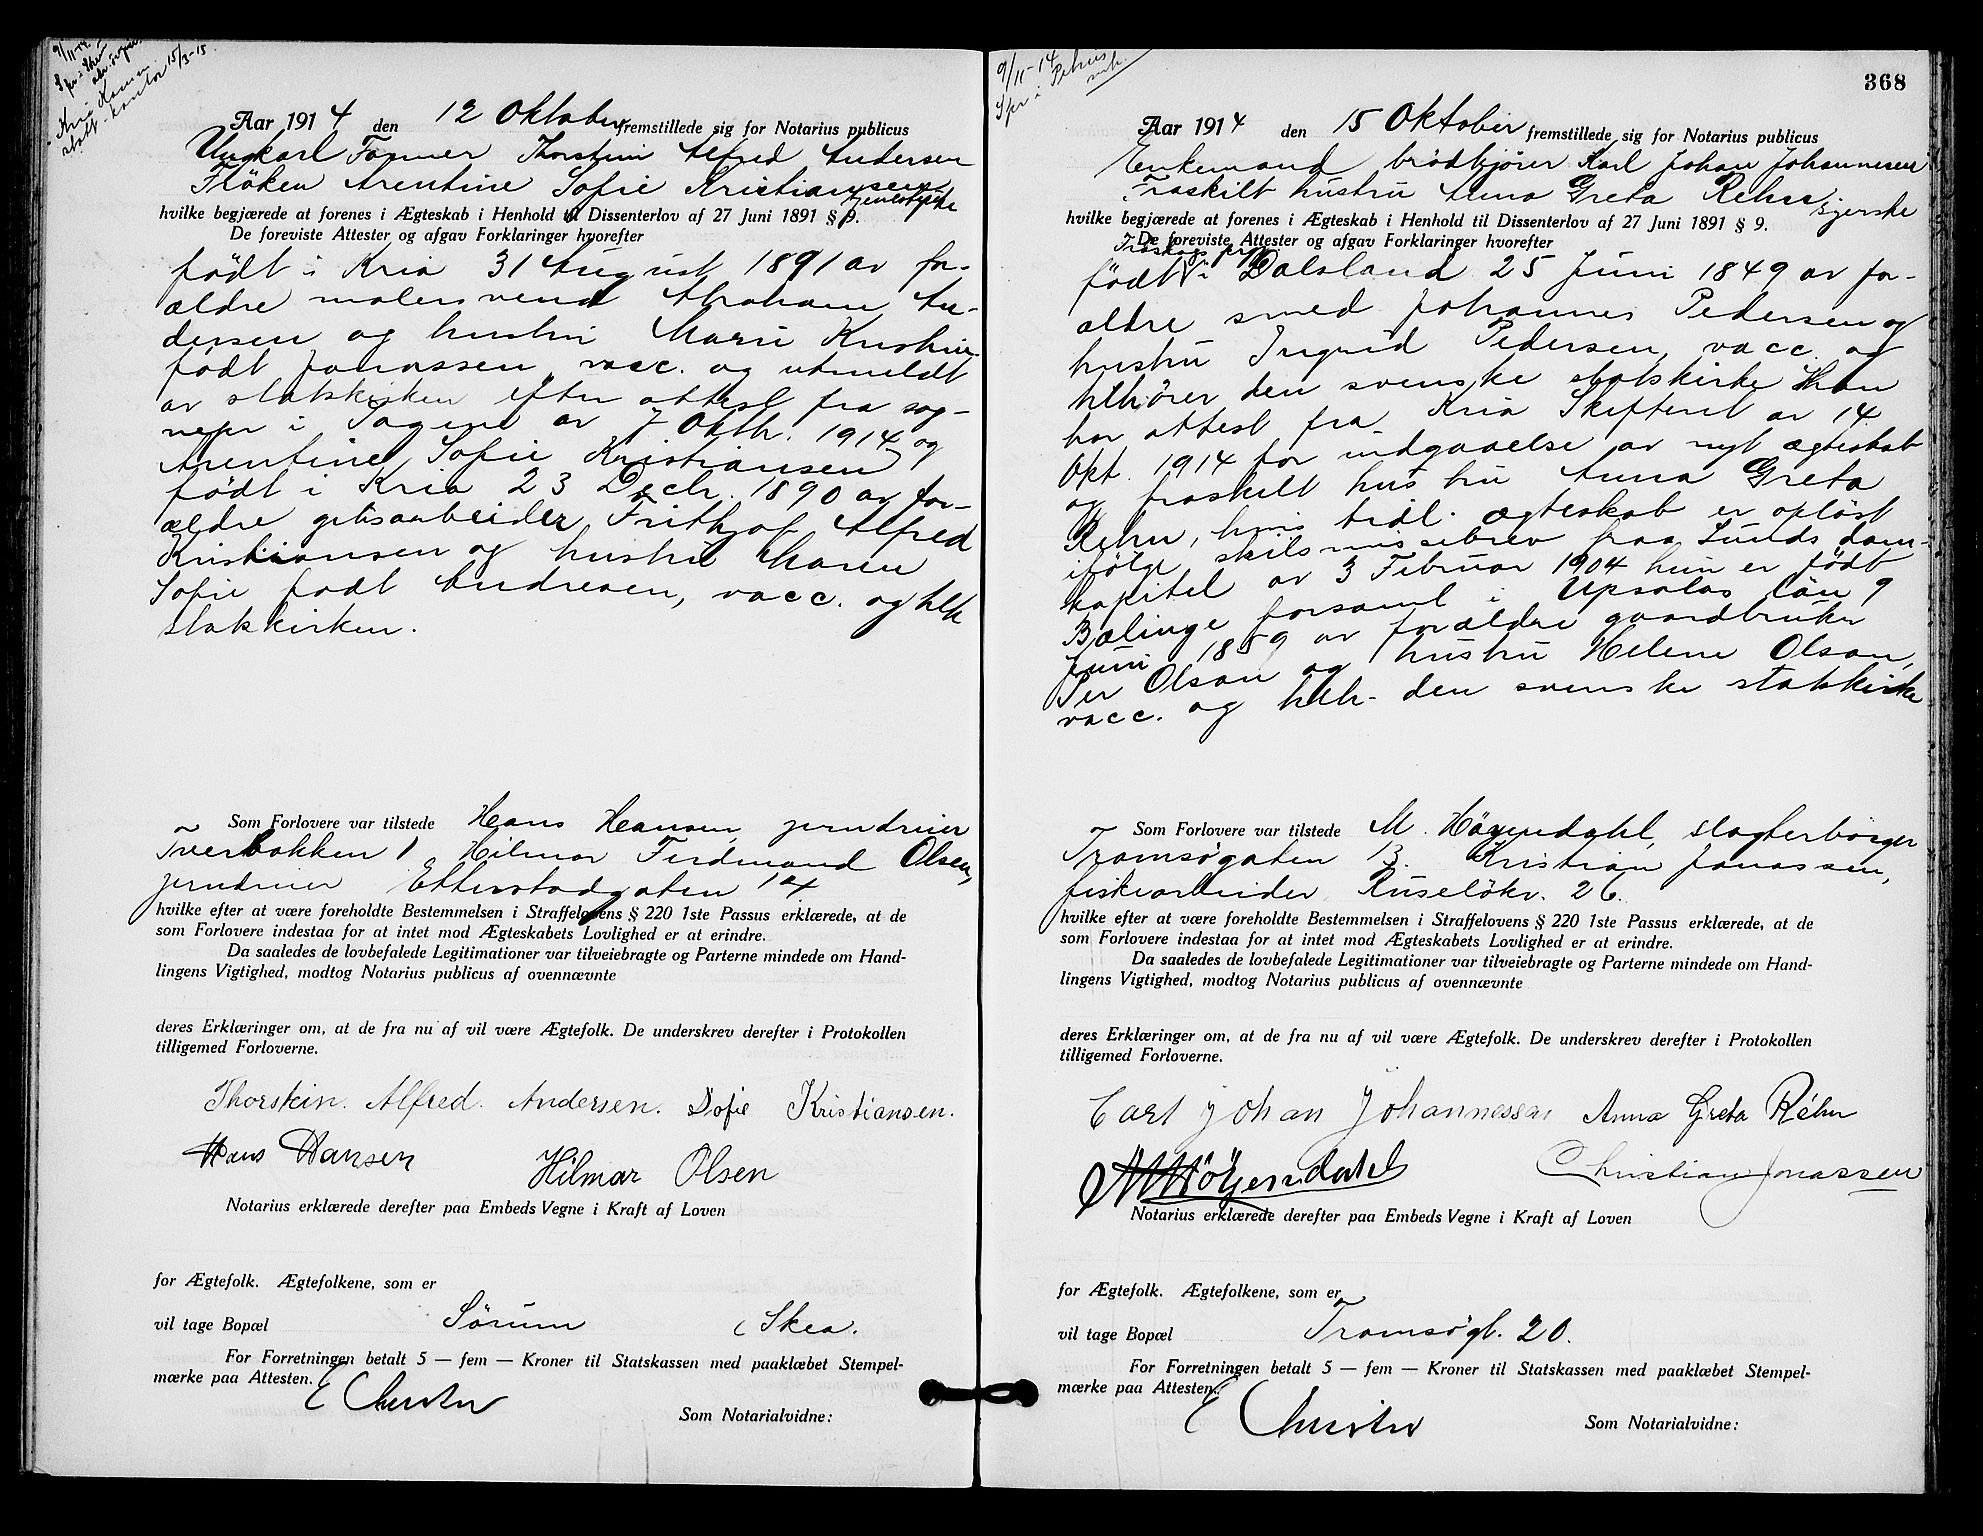 9/11-14
Spr i
15/3-15
Aar 1914 den 12 Oktober fremstillede sig for Notarius publicus
Ungkarl Former Thorstein Alfred Andersen
Frøken Arentine Sofie Kristiansen
hvilke begjærede at forenes i Ægteskab i Henhold til Dissenterlov af 27 Juni 1891 § 9.
De foreviste Attester og afgav Forklaringer hvorefter
født i Kria 31 August 1891 av for-
ældre malersvend Abraham An-
dersen og hustru Marie Kristine
født Jonassen, vacc. og utmeldt
av statskirken efter attest fra sog-
nepr i Sagene av 7 Oktbr. 1914 og
Arentine Sofie Kristiansen
født i Kria 23 Decbr. 1890 av for-
ældre gatearbeider Frithjof Alfred
Kristiansen og hustru Maren
Sofie født Andreasen, vacc. og tilh
statskirken.
Som Forlovere var tilstede Hans Hansen jerndreier
Tverbakken 1 Hilmar Ferdinand Olsen,
jerndreier Etterstadgaten 14
hvilke efter at være foreholdte Bestemmelsen i Straffelovens § 220 1ste Passus erklærede, at de
som Forlovere indestaa for at intet mod Ægteskabets Lovlighed er at erindre.
Da saaledes de lovbefalede Legitimationer var tilveiebragte og Parterne mindede om Hand-
lingens Vigtighed, modtog Notarius publicus af ovennævnte
deres Erklæringer om, at de fra nu af vil være Ægtefolk. De underskrev derefter i Protokollen
tilligemed Forloverne.
Thorstein. Alfred. Andersen. Sofie Kristiansen.
Hans Hansen Hilmar Olsen
Notarius erklærede derefter paa Embeds Vegne i Kraft af Loven
for Ægtefolk. Ægtefolkene, som er
vil tage Bopæl Sørum i Skea.
For Forretningen betalt 5 — fem — Kroner til Statskassen med paaklæbet Stempel-
mærke paa Attesten.
E
Som Notarialvidne:
9/11-14
Spr i Petrus
mh.
368
Aar 1914 den 15 Oktober fremstillede sig for Notarius publicus
Enkemand brødkjører Karl Johan Johannesen
Fraskilt hustru Anna Greta Rehn
hvilke begjærede at forenes i Ægteskab i Henhold til Dissenterlov af 27 Juni 1891 § 9.
De foreviste Attester og afgav Forklaringer hvorefter
født i Dalsland 25 Juni 1849 av for-
ældre smed Johannes Pedersen og
hustru Ingrid Pedersen, vacc. og
tilhører den svenske statskirke Han
har attest fra Kria Skifteret av 14
Okt. 1914 for indgaaelse av nyt ægteskab
og fraskilt hustru Anna Greta
Rehn, hvis tidl. ægteskab er opløst
ifølge skilsmissebrev fra Lunds dom-
kapitel av 3 Februar 1904 hun er født
Bælinge forsaml i Upsalas län 9
Juni 1859 av forældre gaardbruker
Per Olson og hustru Helene Olson,
vacc. og tilh. den svenske statskirke
Som Forlovere var tilstede M. Høgendahl, slagterborger
Tromsøgaten 13. Kristian Jonassen,
fiskearbeider Ruseløkv. 26.
hvilke efter at være foreholdte Bestemmelsen i Straffelovens § 220 1ste Passus erklærede, at de
som Forlovere indestaa for at intet mod Ægteskabets Lovlighed er at erindre.
Da saaledes de lovbefalede Legitimationer var tilveiebragte og Parterne mindede om Hand-
lingens Vigtighed, modtog Notarius publicus af ovennævnte
deres Erklæringer om, at de fra nu af vil være Ægtefolk. De underskrev derefter i Protokollen
tilligemed Forloverne.
Carl Johan Johannessen Anna Greta Réhn
Christian Jonassen
Notarius erklærede derefter paa Embeds Vegne i Kraft af Loven
for Ægtefolk. Ægtefolkene, som er
vil tage Bopæl Tromsøgt. 20.
For Forretningen betalt 5 — fem — Kroner til Statskassen med paaklæbet Stempel-
mærke paa Attesten.
E
Som Notarialvidne: